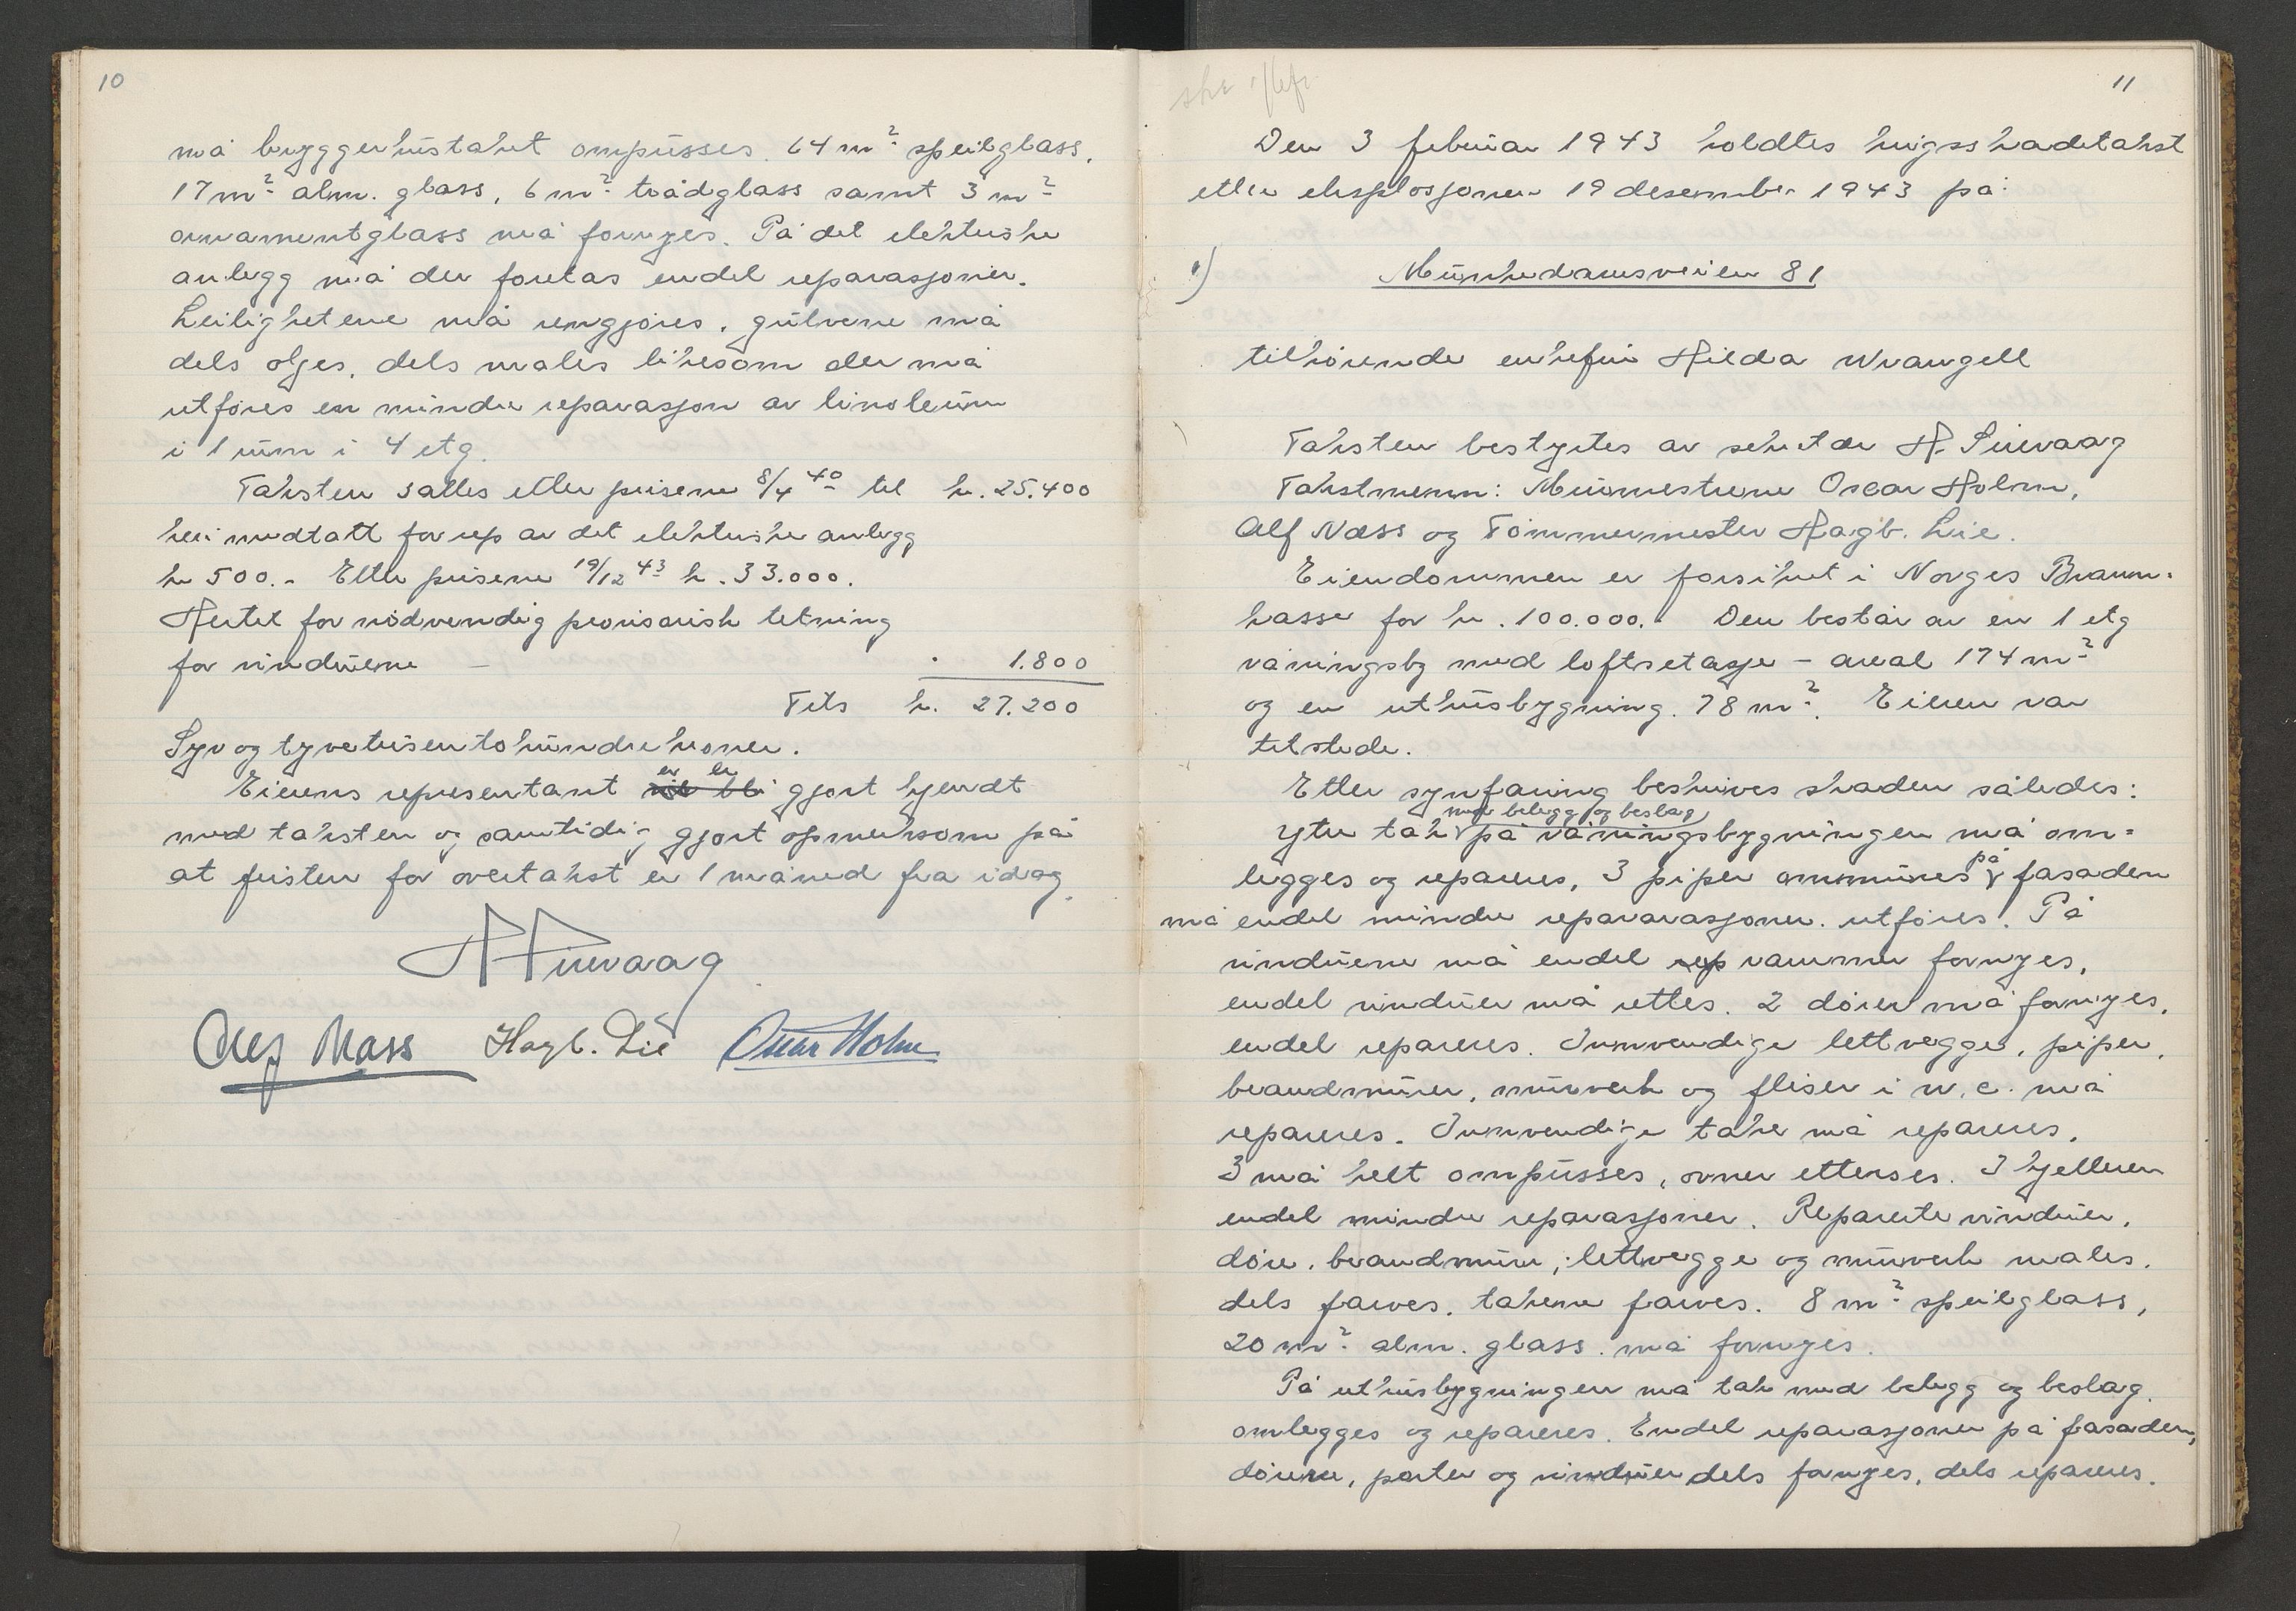 10
må bryggerhustaket ompusses. 64 m² speilglass,
17 m² alm. glass, 6 m² trådglass samt 3 m²
ornamentglass må fornyes. På det elektriske
anlegg må der foretas endel reparasjoner.
Leilighetene må rengjøres, gulvene må
dels oljes, dels males likesom der må
utføres en mindre reparasjon av linoleum
i 1 rum i 4 etg.
Taksten sattes etter prisene 8/4 40 til kr. 25.400
heri medtatt for rep av det elektriske anlegg
kr 500.- Etter prisene 19/12 43 kr. 33.000.
Hertil for nødvendig provisorisk tetning
for vinduene - " 1.800
Tils kr. 27.200
Syv og tyvetusentohundre kroner.
Eierens representant er ble gjort kjendt
med taksten og samtidig gjort opmerksom på
at fristen for overtakst er 1 måned fra idag.
H Sirevaag
Alf Næss Hagb. Lie Oscar Holm
11
Den 3 februar 1943 holdtes krigsskadetakst
etter eksplosjonen 19 desember 1943 på:
1) Munkedamsveien 81
tilhørende enkefru Hilda Wrangell
Taksten bestyrtes av sekretær H. Sirevaag
Takstmenn: Murmestrene Oscar Holm,
Alf Næss og Tømmermester Hagb. Lie.
Eiendommen er forsikret i Norges Brann-
kasse for kr. 100.000. Den består av en 1 etg
våningsby med loftsetasje - areal 174 m²
og en uthusbygning. 78 m². Eieren var
tilstede.
Etter synfaring beskrives skaden således:
med belegg og beslag
Ytre tak på våningsbygningen må om-
legges og repareres, 3 piper ommures på fasaden
må endel mindre repararasjoner. utføres. På
vinduene må endel rep rammer fornyes,
endel vinduer må rettes. 2 dører må fornyes,
endel repareres. Innvendige lettvegger, piper,
brandmurer, murverk og fliser i w.c. må
repareres. Innvendige taker må repareres,
3 må helt ompusses, ovner etterses. I kjelleren
endel mindre reparasjoner. Reparerte vinduer,
døre, brandmure, lettvegge og murverk males,
dels farves, takene farves. 8 m² speilglass,
20 m² alm. glass. må fornyes.
På uthusbygningen må tak med belegg og beslag
omlegges og repareres. Endel reparasjoner på fasaden,
dørene, porter og vinduer dels fornyes, dels repareres.